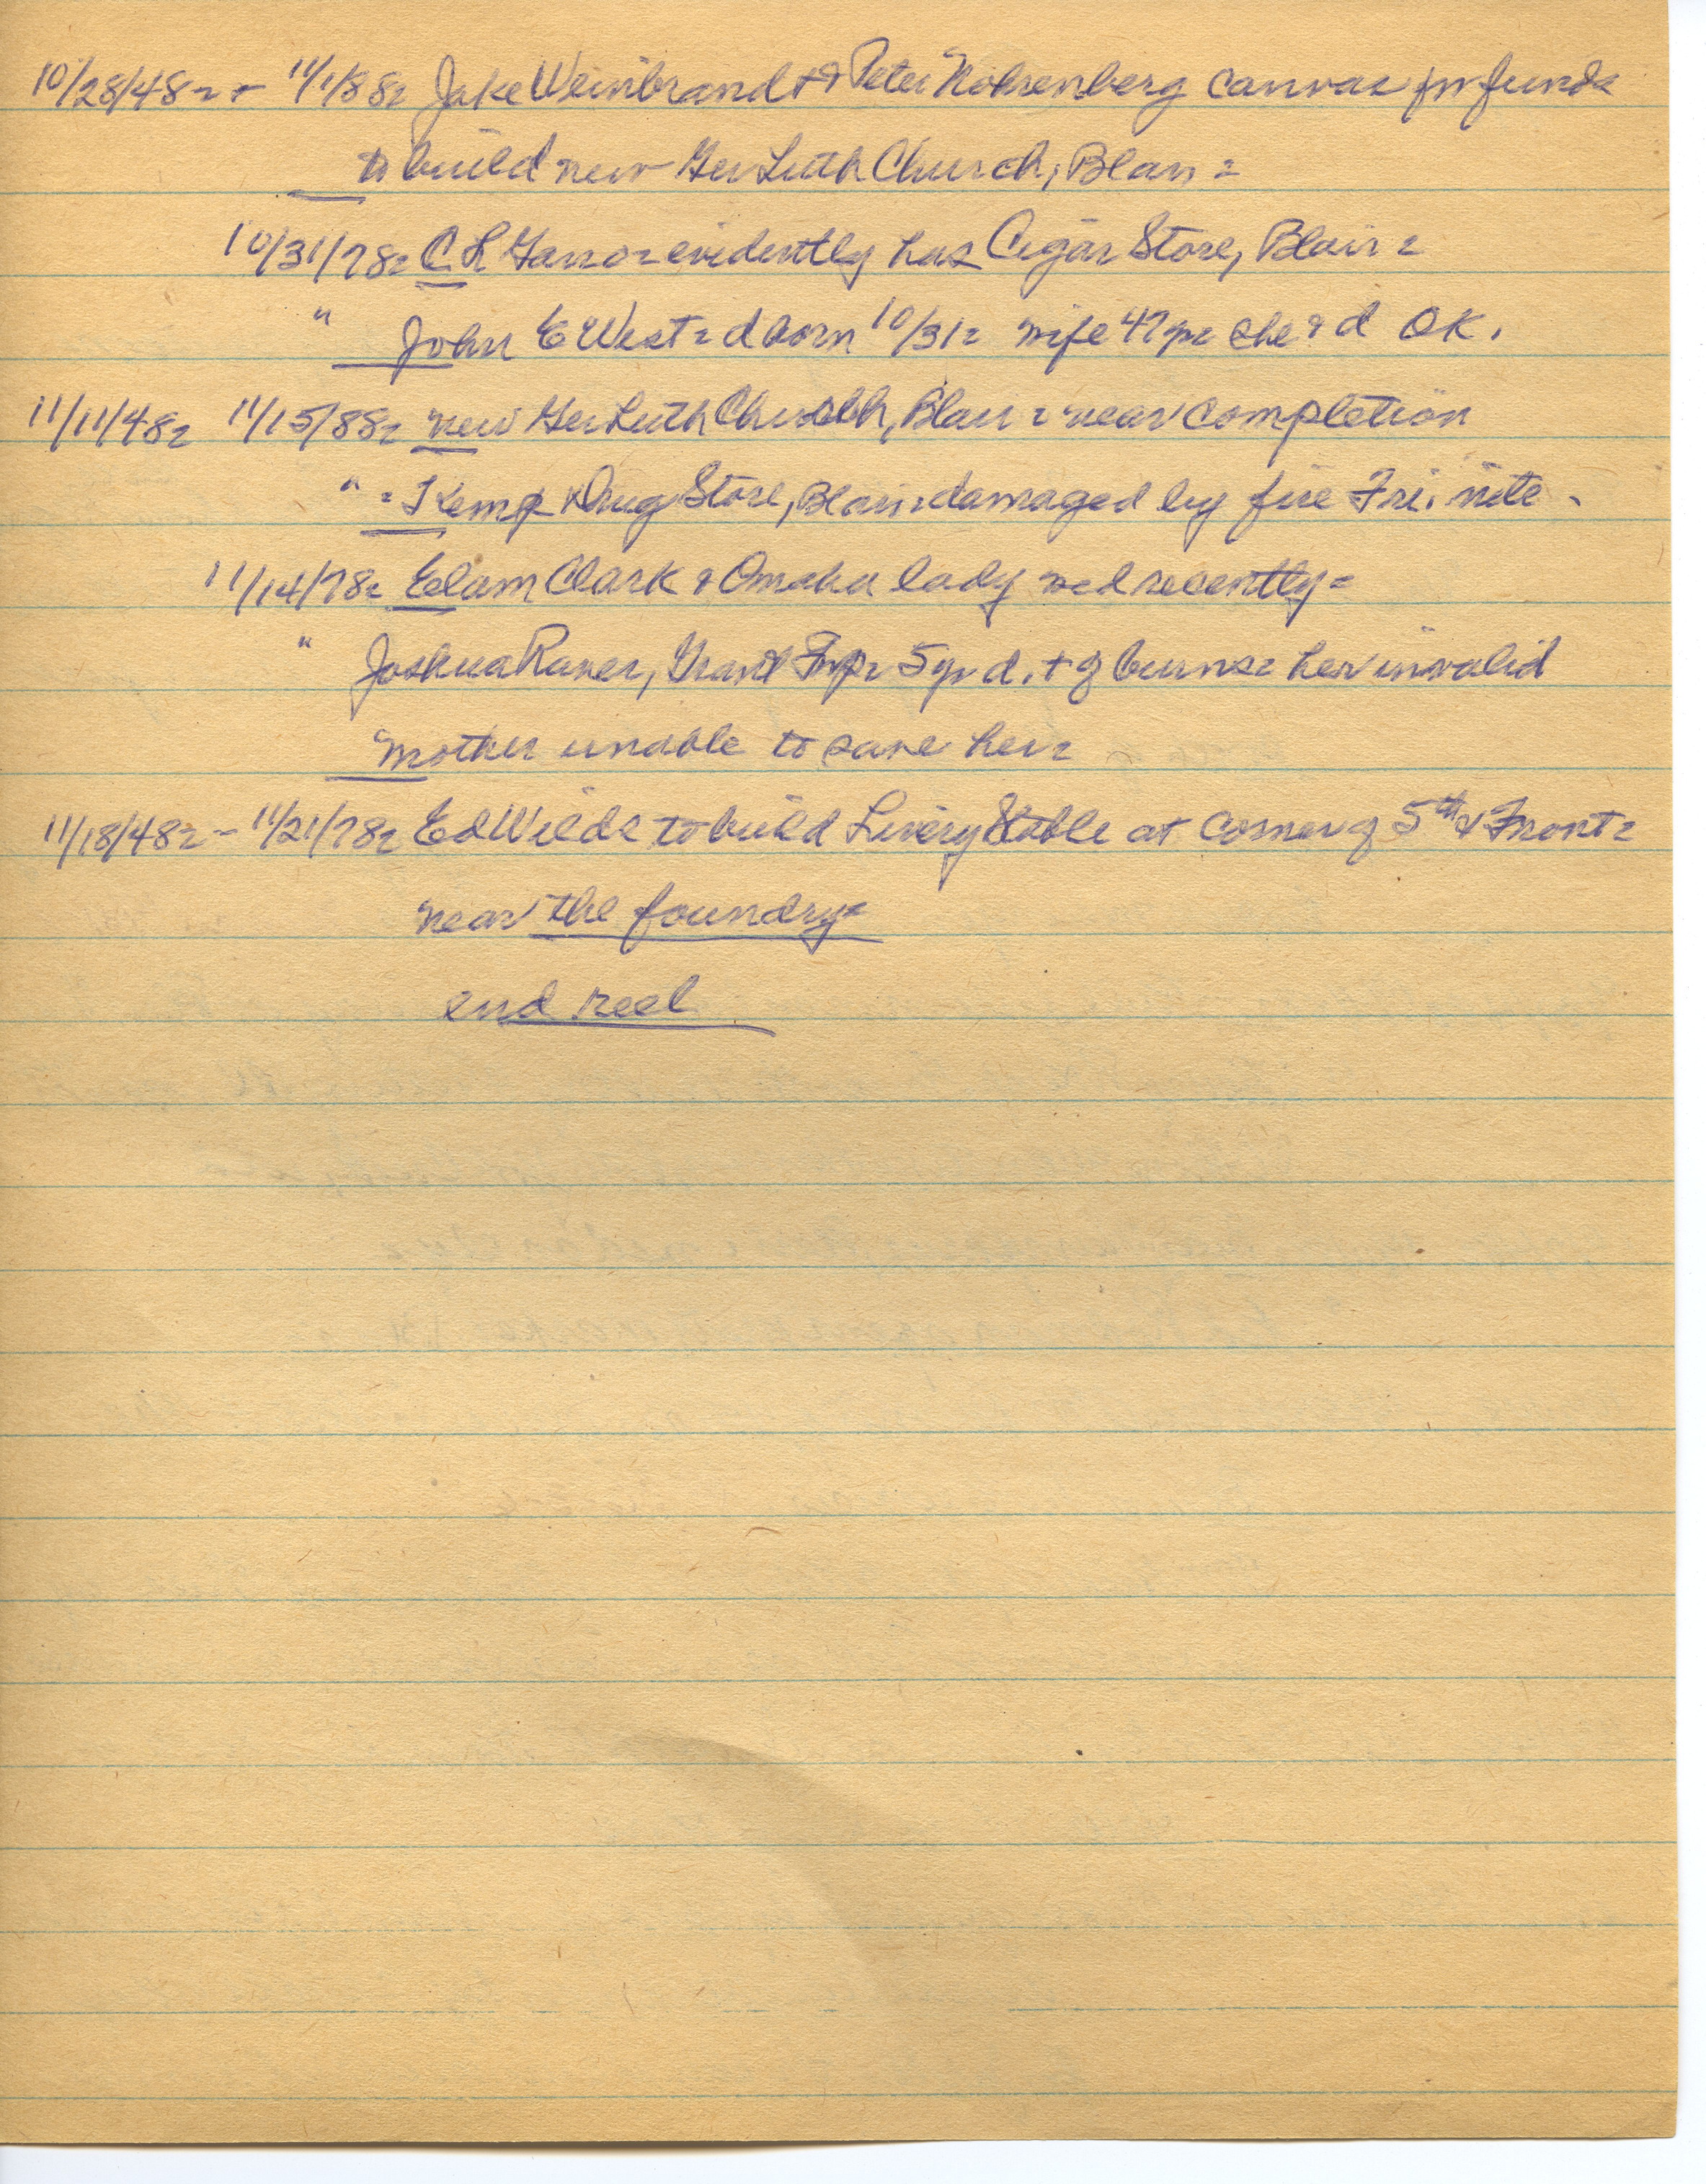 10/28/48 = - 11/1/88 = Jake Weinbrandt & Peter Nohrenberg canvas for funds
to build new Ger Luth Church, Blair =
10/31/78 = C L Ganso = evidently has Cigar Store, Blair =
" John E West = d born 10/31 = wife 47 yr = she & d OK.
11/11/48 = 11/15/88 = new Ger Luth Church, Blair = near completion
" = Kemp Drug Store, Blair = damaged by fire Fri. nite -
11/14/78 = Elam Clark & Omaha lady wed recently =
" Joshua Raver, Grant Twp = 5 yr d. + of burns = her invalid
mother unable to save her =
11/18/48 = - 11/21/78 = Ed Wilds to build Livery Stable at corner of 5th & Front =
near the foundry =
end reel